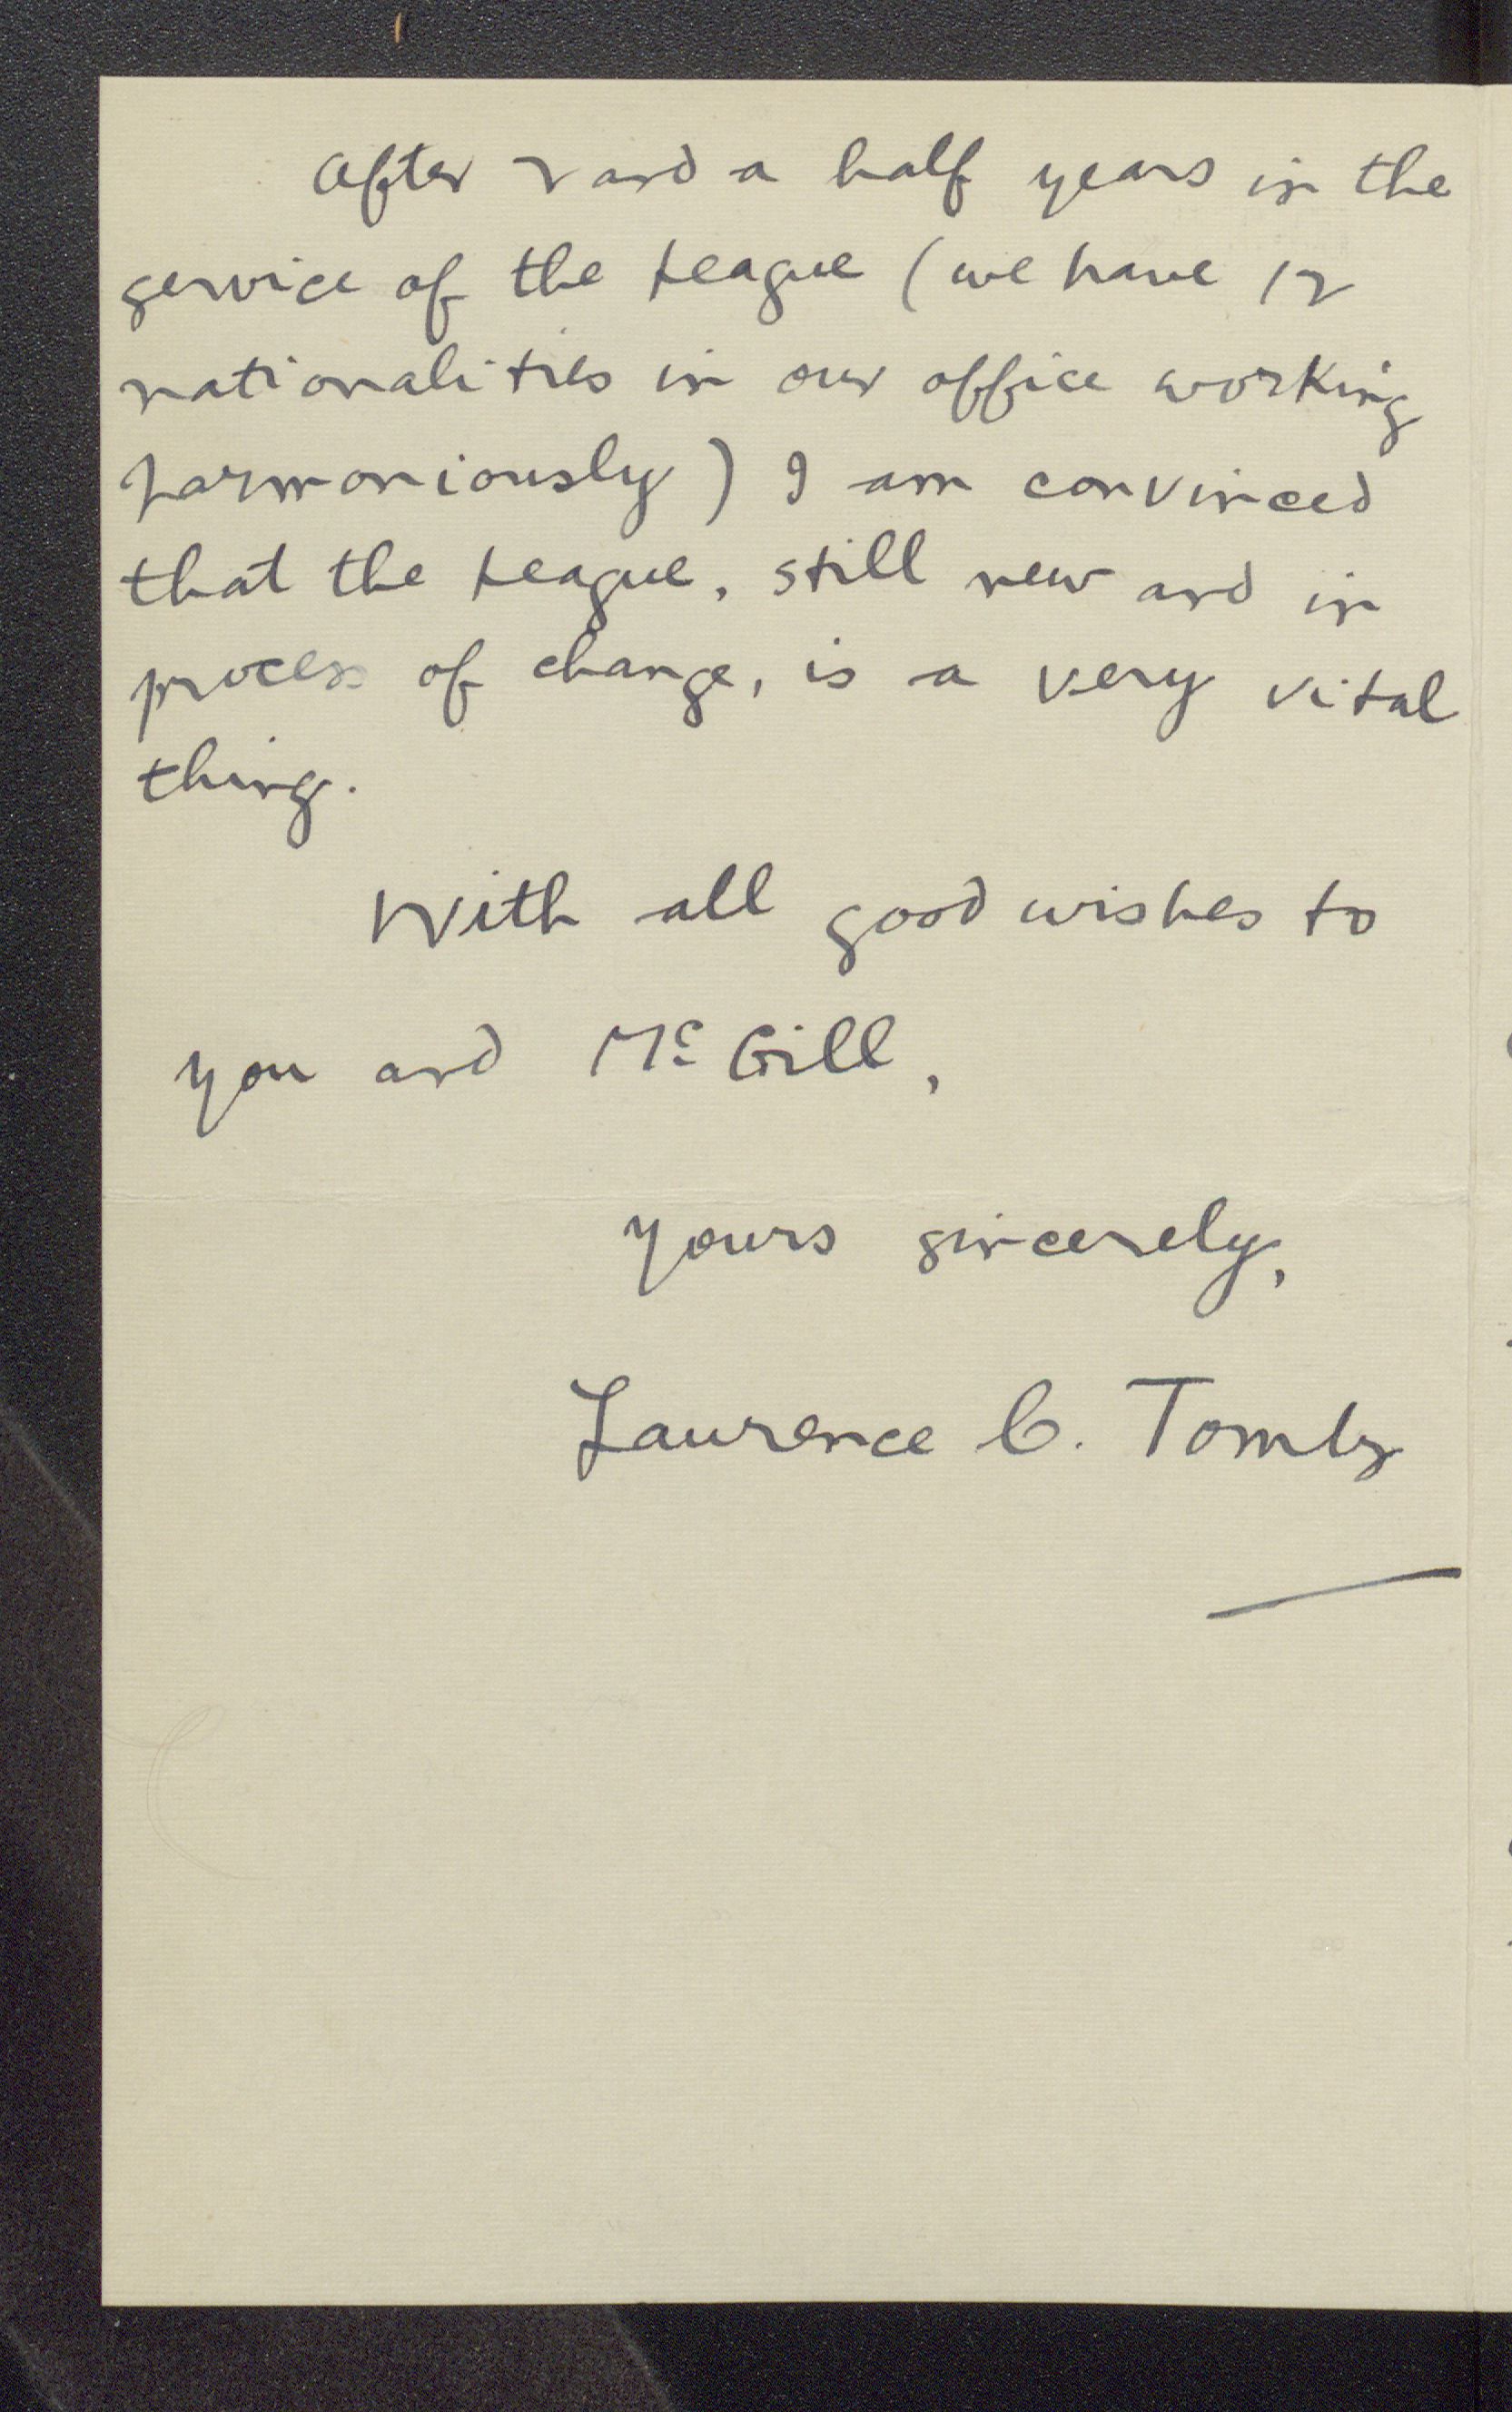 After 2 and a half years in the
service of the League (we have 12
nationalities in our office working
harmoniously) I am convinced
that the League, still new and in
process of change, is a very vital
thing.
With all good wishes to
you and Mc Gill,
Yours sincerely,
Laurence C. Tombs